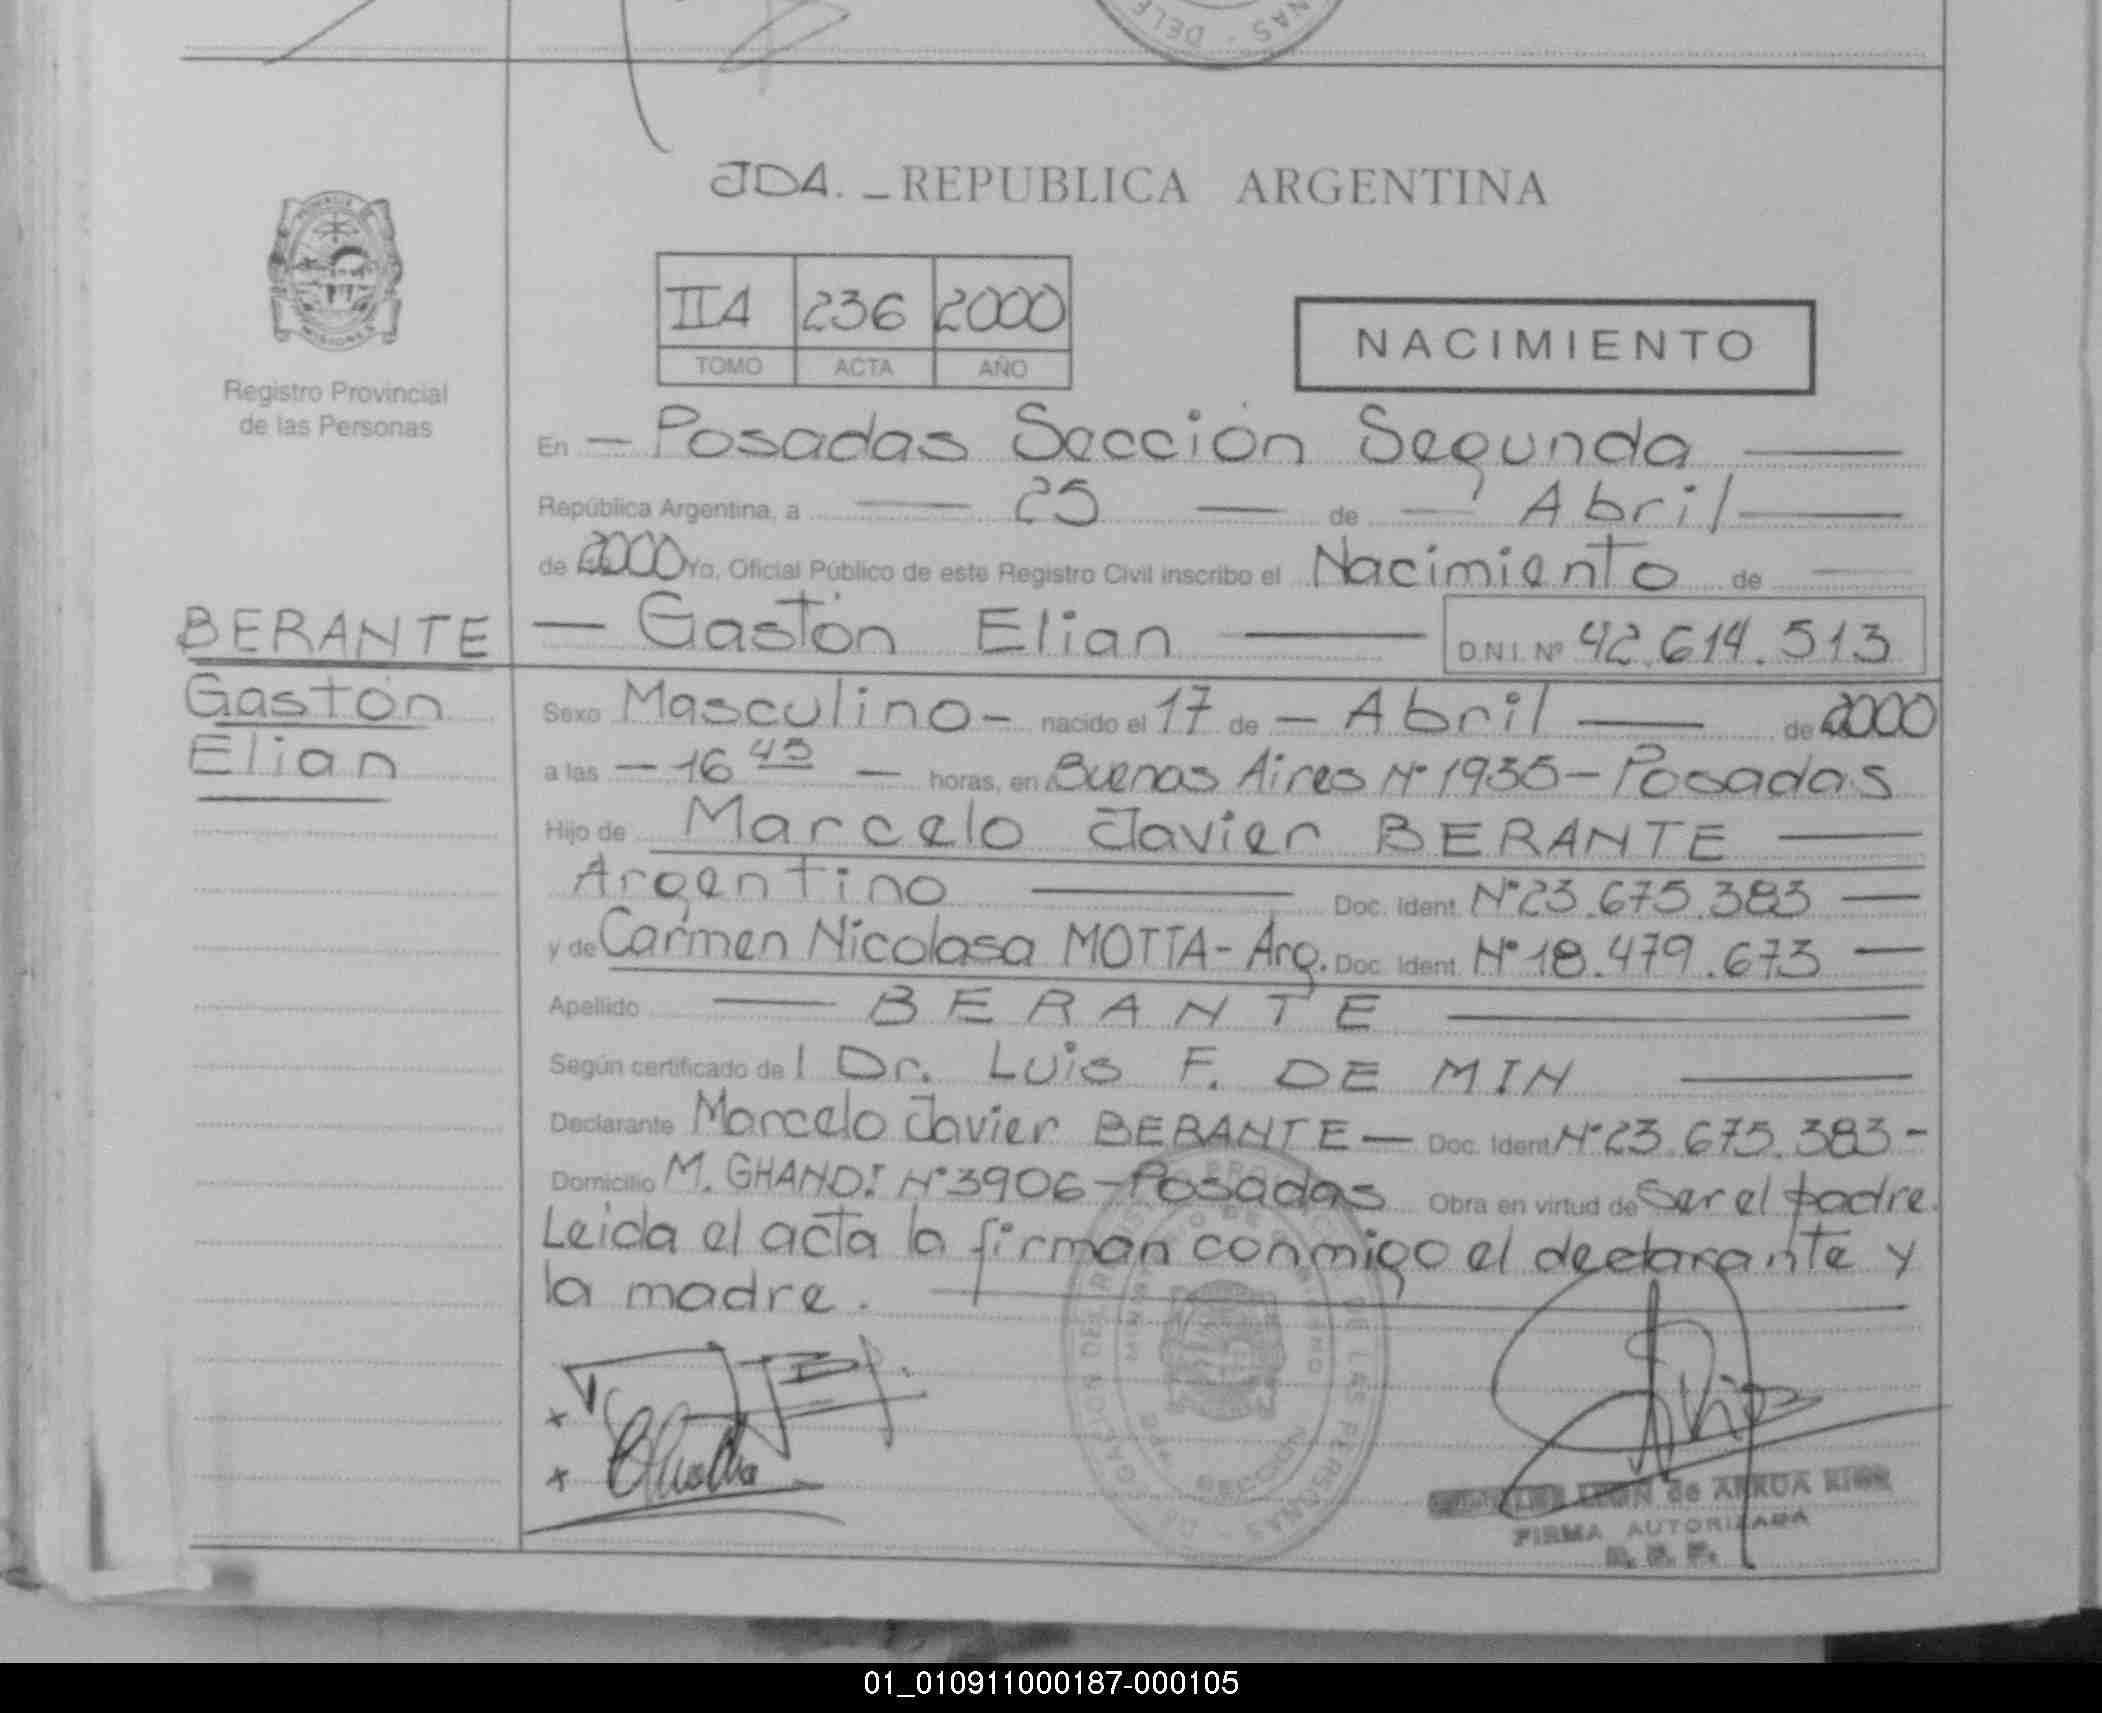 JDA. - REPUBLICA ARGENTINA
IIA 236 2000
TOMO ACTA AÑO
NACIMIENTO
Registro Provincial
de las Personas
En - Posadas Sección Segunda
República Argentina, a 25 de Abril
de 2000 Yo, Oficial Público de este Registro Civil inscribo el Nacimiento de
BERANTE
Gastón
Elian
- Gastón Elian D.N.I. Nº 42.614.513
Sexo Masculino - nacido el 17 de - Abril de 2000
a las - 16 45 - horas, en Buenas Aires Nº 1935 - Posadas
Hijo de Marcelo Javier BERANTE
Argentino Doc. Ident. Nº 23.675.383
y de Carmen Nicolasa MOTTA - Arg. Doc. Ident. Nº 18.479.673
Apellido BERANTE
Según certificado del Dr. Luis F. DE MIN
Declarante Marcelo Javier BERANTE - Doc. Ident Nº 23.675.383 -
Domicilio M. GHANDI Nº 3906 - Posadas Obra en virtud de Ser el padre.
Leida el acta la firman conmigo el declarante y
la madre.
LEON de ARRUA
FIRMA AUTORIZADA
01_010911000187-000105